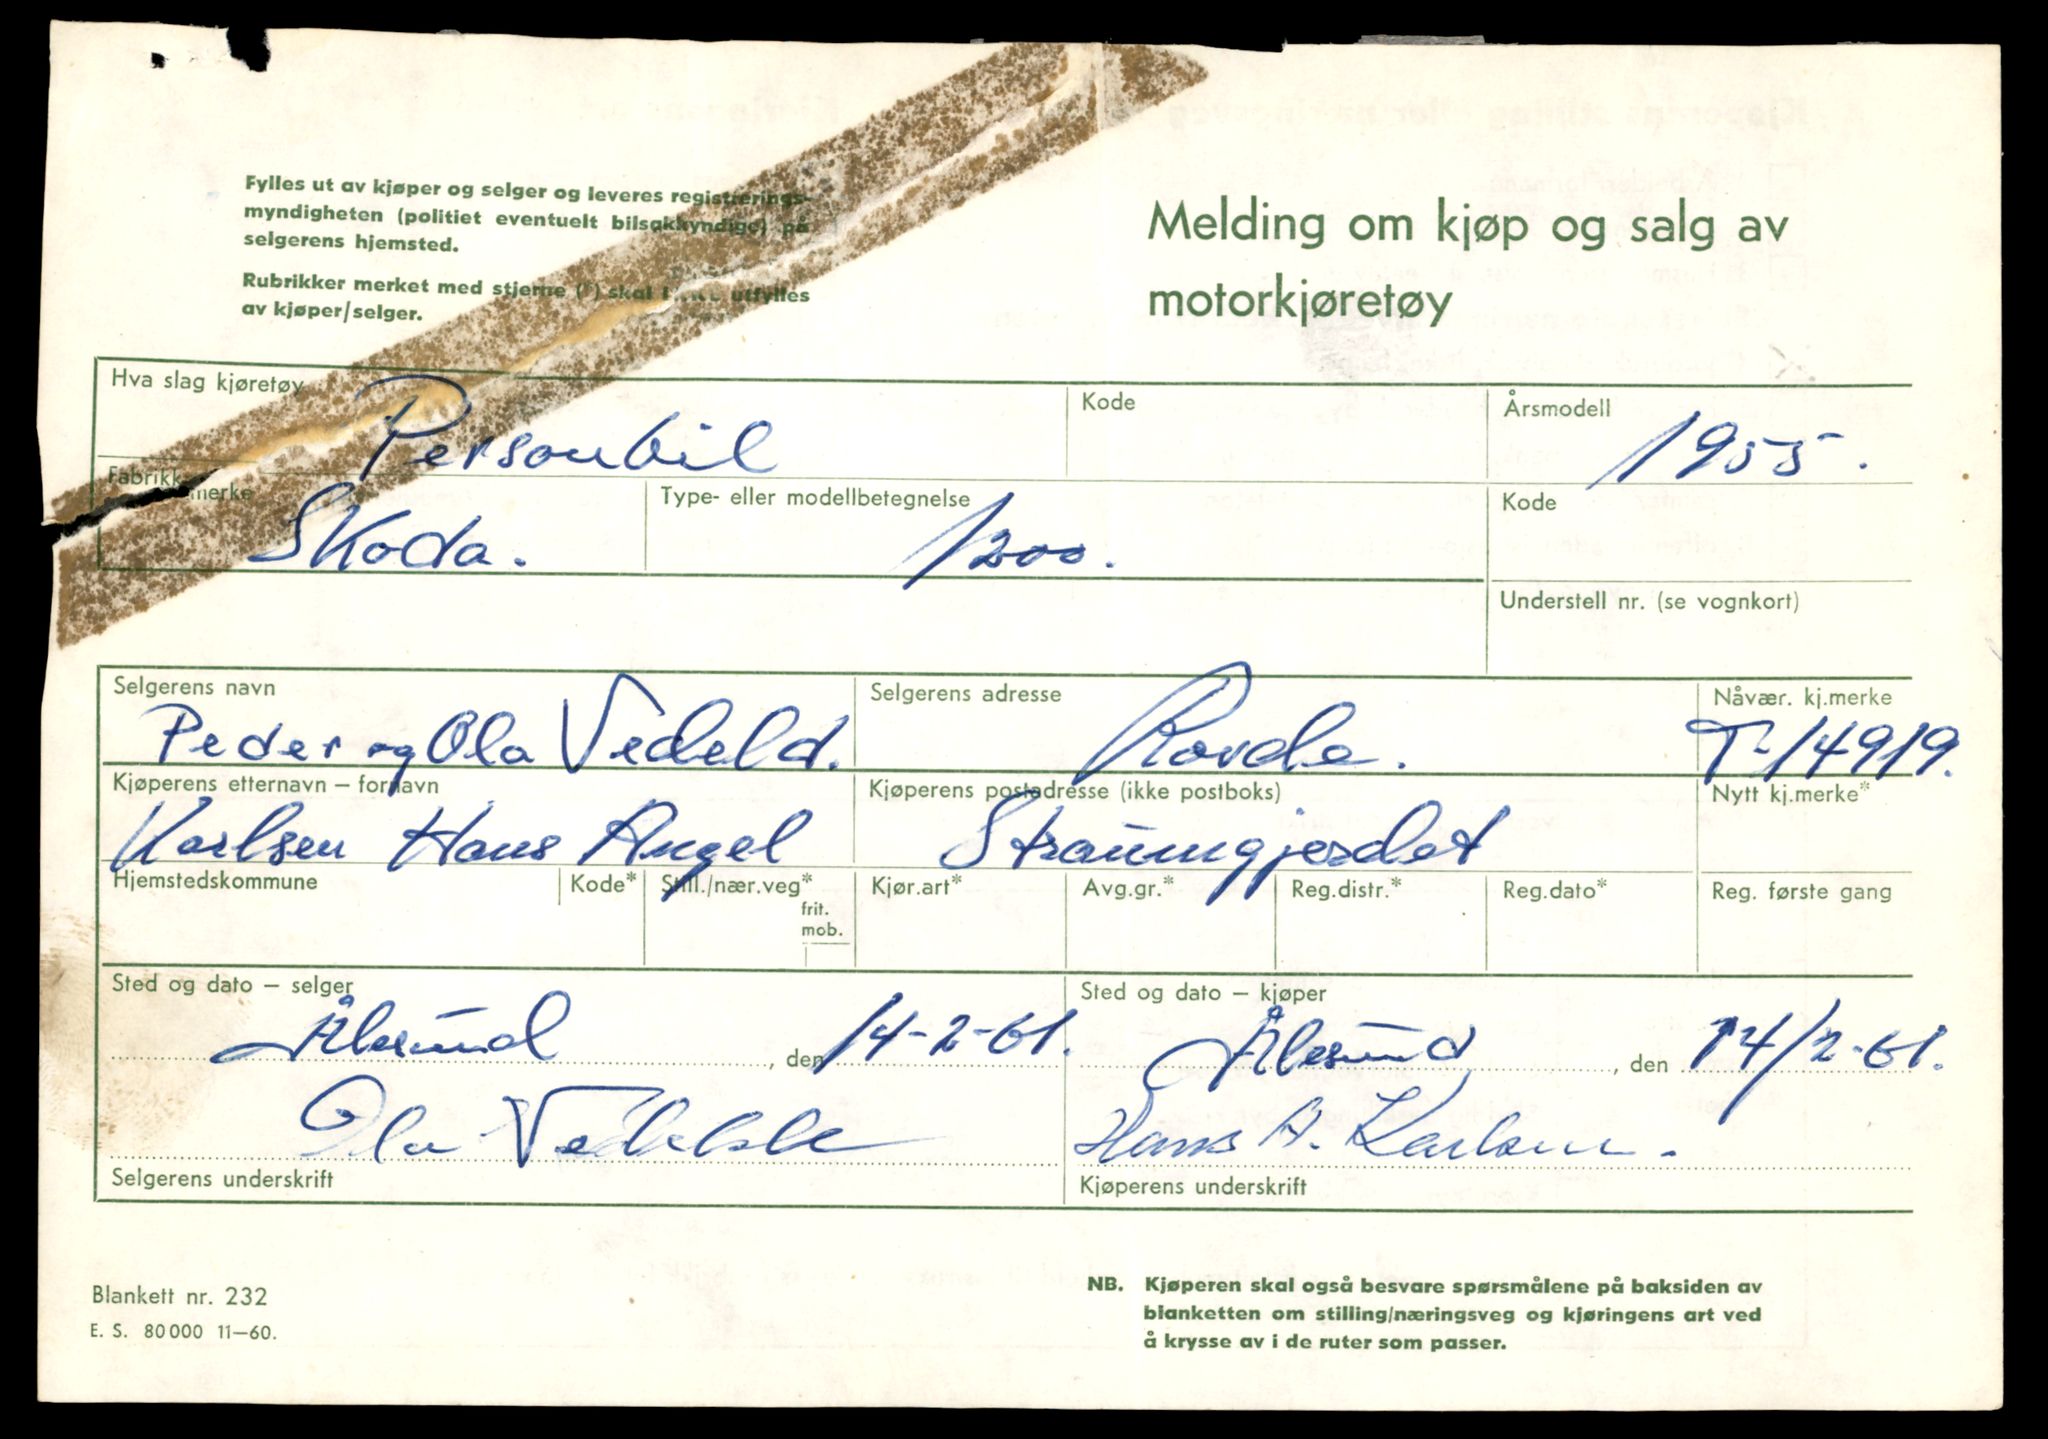 Fylles ut av kjøper og selger og leveres registrerings-
myndigheten (politiet eventuelt bilsakkyndige) på
selgerens hjemsted.
Rubrikker merket med stjerne (*) skal IKKE utfylles
av kjøper/selger.
Melding om kjøp og salg av
motorkjøretøy
Hva slag kjøretøy
Personbil
Kode
Årsmodell
1955.
Fabrikkmerke
Skoda.
Type- eller modellbetegnelse
1200.
Kode
Understell nr. (se vognkort)
Selgerens navn
Peder og Ola Vedeld.
Selgerens adresse
Rovde.
Nåvær. kj.merke
T-14919.
Kjøperens etternavn – fornavn
Karlsen Hans Angel
Kjøperens postadresse (ikke postboks)
Straumgjerdet
Nytt kj.merke*
Hjemstedskommune
Kode*
Still./nær.veg*
frit.
mob.
Kjør.art*
Avg.gr.*
Reg.distr.*
Reg.dato*
Reg. første gang
Sted og dato – selger
Ålesund, den 14-2-61.
Ola Vedeld
Selgerens underskrift
Sted og dato – kjøper
Ålesund, den 14/2-61.
Hans A. Karlsen.
Kjøperens underskrift
Blankett nr. 232
E. S. 80 000 11–60.
NB. Kjøperen skal også besvare spørsmålene på baksiden av
blanketten om stilling/næringsveg og kjøringens art ved
å krysse av i de ruter som passer.